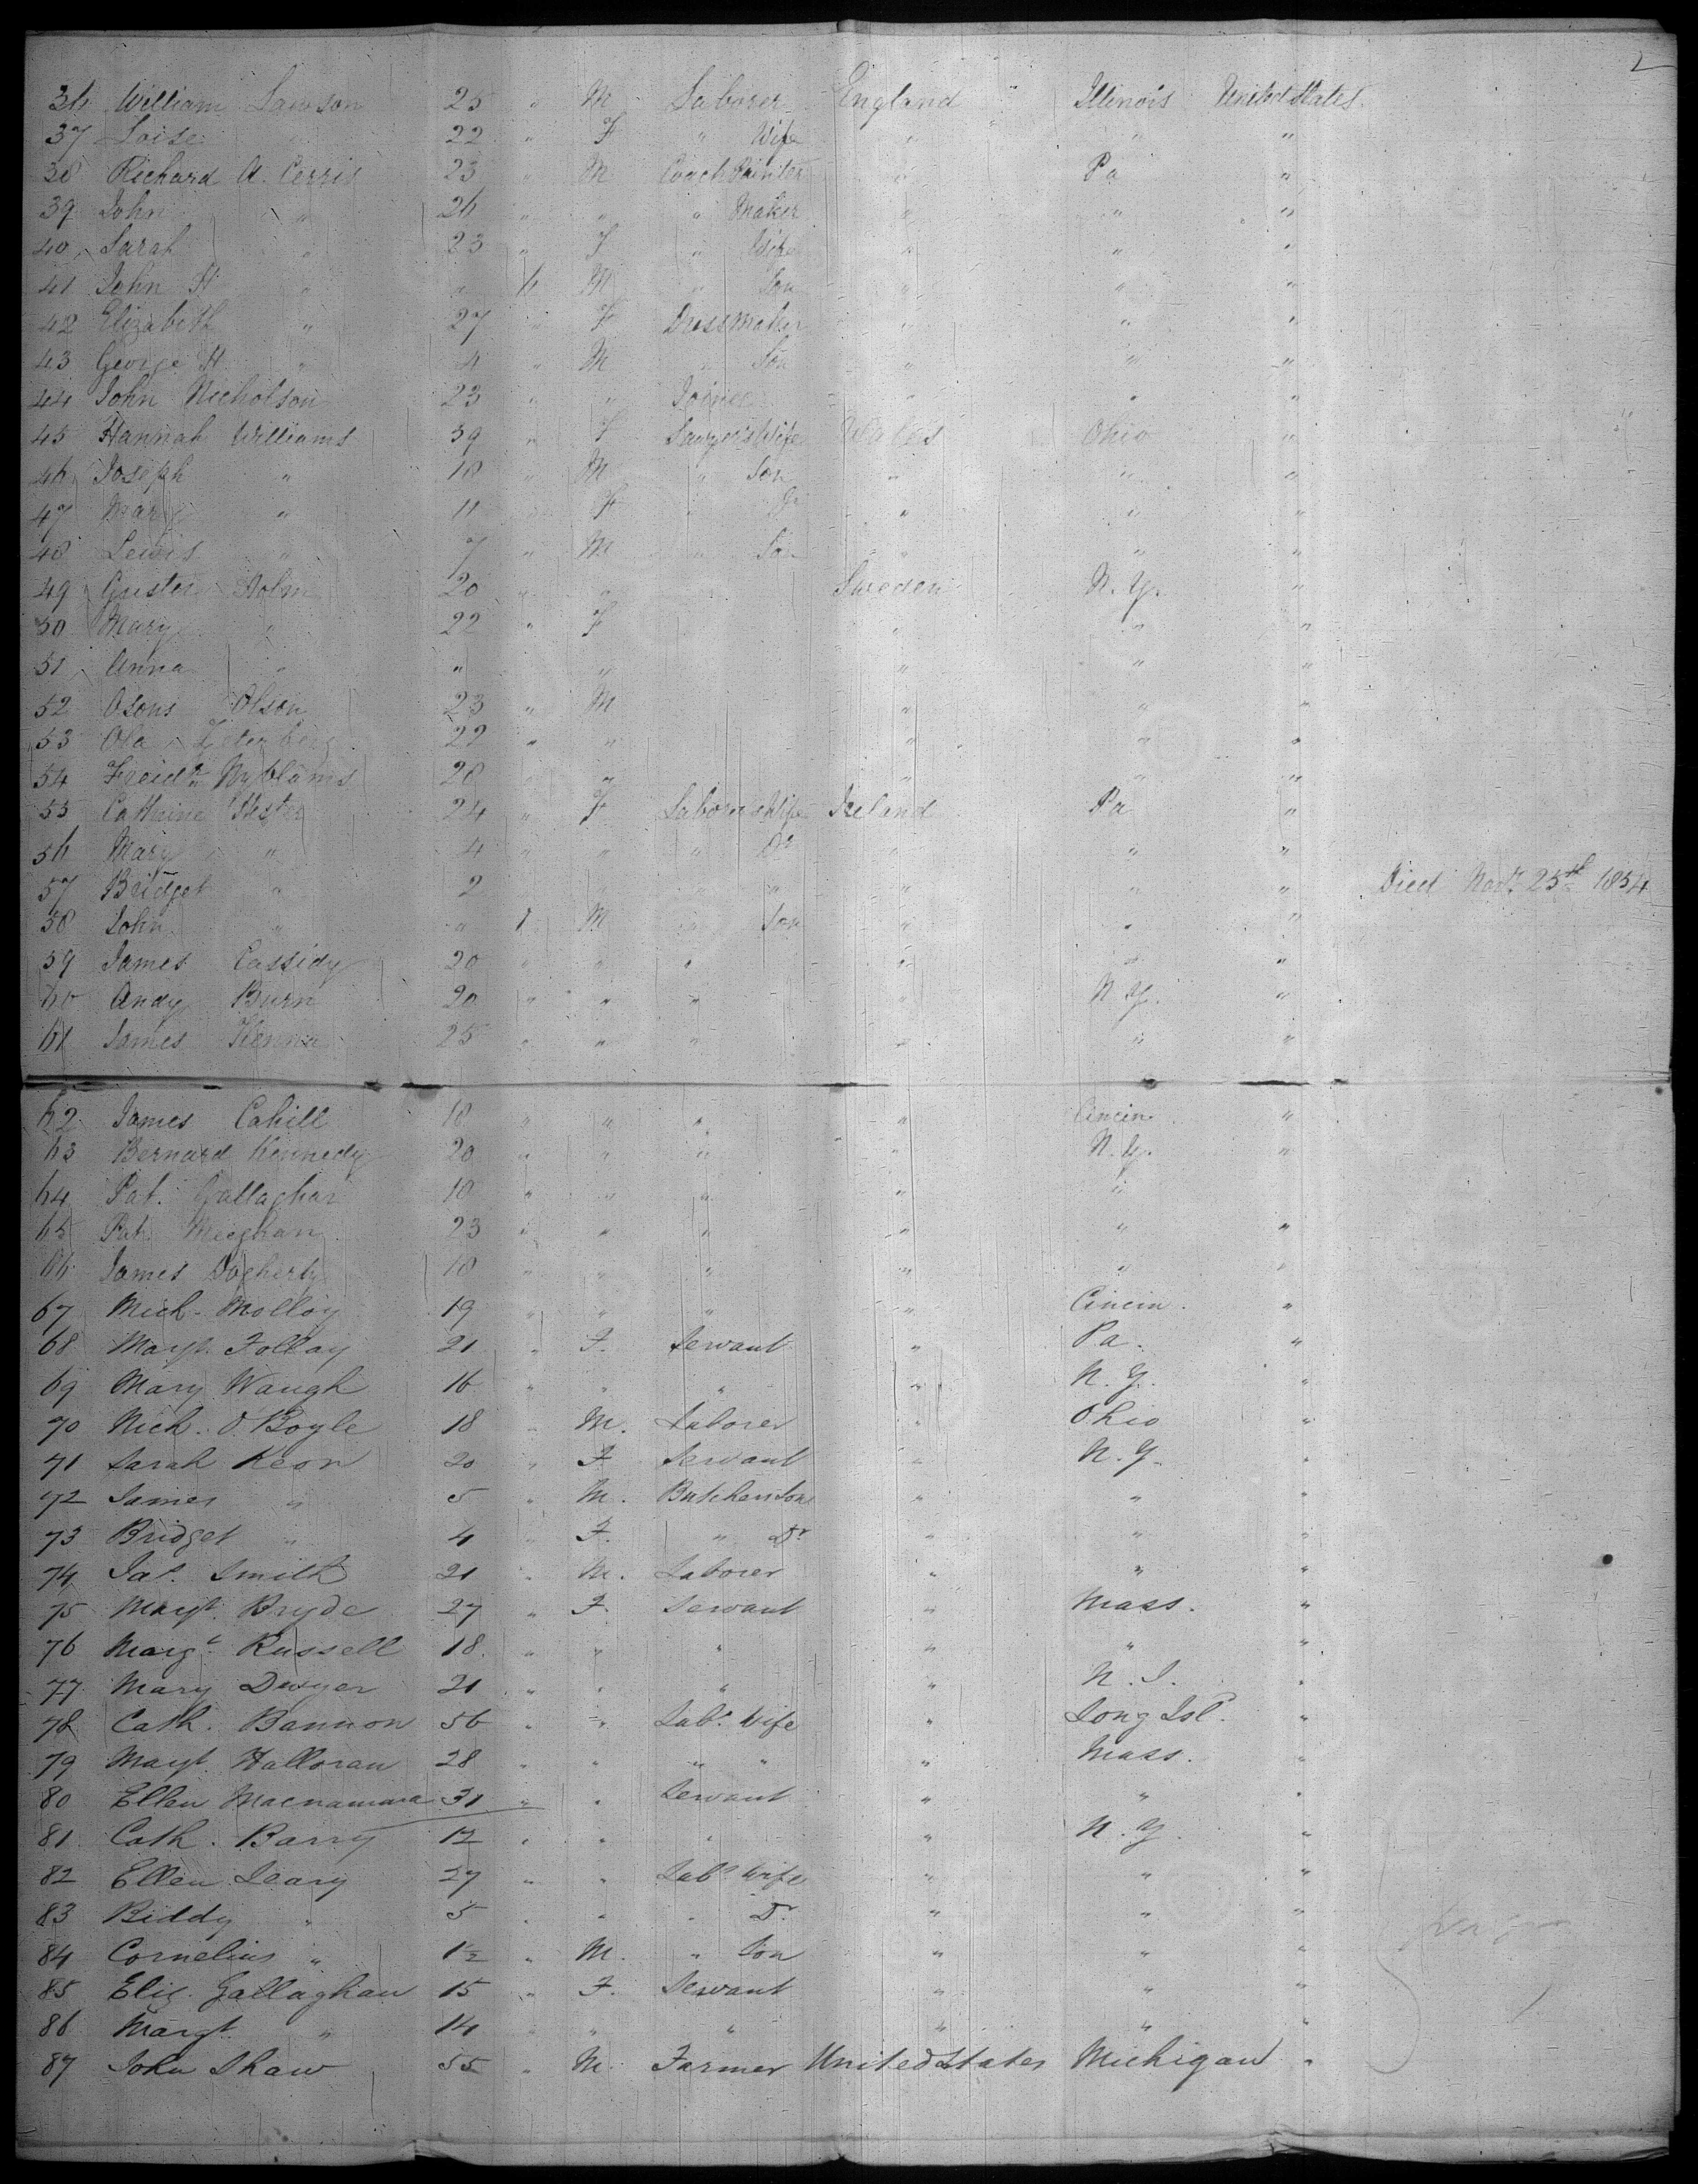 2
36 William Lawson 25 " M Laborer England Illinois United States
37 Loise " 22 " F " Wife " " "
38 Richard A. Cerris 23 " M Coach Painter " Pa "
39 John " 26 " " " Maker " " "
40 Sarah " 23 " F " Wife " " "
41 John H " " 6 M " Son " " "
42 Elizabeth " 27 " F Dressmaker " " "
43 George H. " 4 " M " Son " " "
44 John Nicholson 23 " " Joiner " " "
45 Hannah Williams 39 " F Sawyers Wife Wales Ohio "
46 Joseph " 18 " M " Son " " "
47 Mary " 11 " F " Dr " " "
48 Lewis " 7 " M " Son " " "
49 Holm 20 " " Sweden N.Y. "
50 Mary " 22 " F " " "
51 Anna " " " " " "
52 Olson 23 " M " " "
53 Ola 22 " " " " "
54 28 " " " " "
55 Catherine Hester 24 " F Laborers Wife Ireland Pa "
56 Mary " 4 " " " Dr " " "
57 Bridget " 2 " " " " " " Died Novr 25th 1854
58 John " " 1 M " Son " " "
59 James Cassidy 20 " " " " " "
60 Andy Burn 20 " " " " N.Y. "
61 James Kenna 25 " " " " " "
62 James Cahill 18 " " " " Cincin. "
63 Bernard Kennedy 20 " " " " N.Y. "
64 Pat. Gallaghar 18 " " " " " "
65 Pat. Meeghan 23 " " " " " "
66 James Dogherty 18 " " " " " "
67 Mich. Molloy 19 " " " " Cincin. "
68 Margt. Follay 21 " F. Servant " Pa. "
69 Mary Waugh 16 " " " " N.Y. "
70 Mich. O'Boyle 18 " M. Laborer " Ohio "
71 Sarah Keon 20 " F Servant " N.Y. "
72 James " 5 " M. Butchers Son " " "
73 Bridget " 4 " F. " Dr " " "
74 Jas. Smith 21 " M. Laborer " " "
75 Margt. Bryde 27 " F. Servant " Mass. "
76 Margt. Russell 18. " " " " " "
77 Mary Dwyer 21 " " " " N.J. "
78 Cath. Bannon 56 " " Labr. Wife " Long Isl. "
79 Margt. Halloran 28 " " " " " Mass. "
80 Ellen Macnamara 31 " " Servant " " "
81 Cath. Barry 12 " " " " N.Y. "
82 Ellen Leary 27 " " Labr. Wife " " "
83 Biddy " 5 " " " Dr " " "
84 Cornelius " 1½ " M. " Son " " "
85 Eliz. Gallaghan 15 " F. Servant " " "
86 Margt. " 14 " " " " " "
87 John Shaw 55 " M. Farmer United States Michigan "